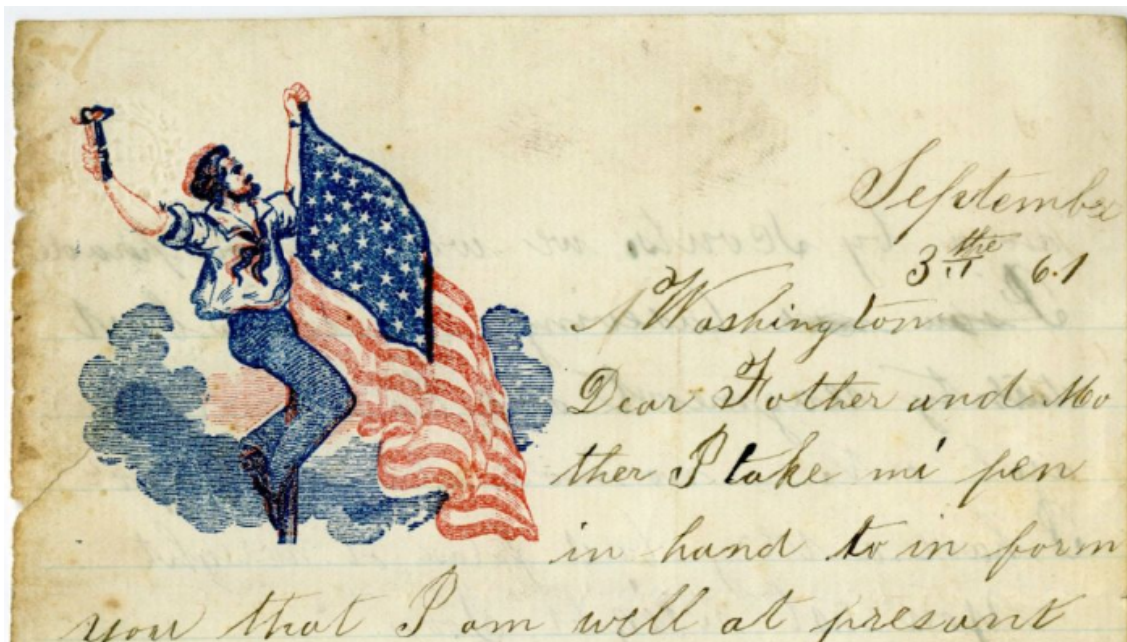 September
3the 61
Washington
Dear Father and Mo
ther I take mi pen
in hand to in form
you that I am well at present